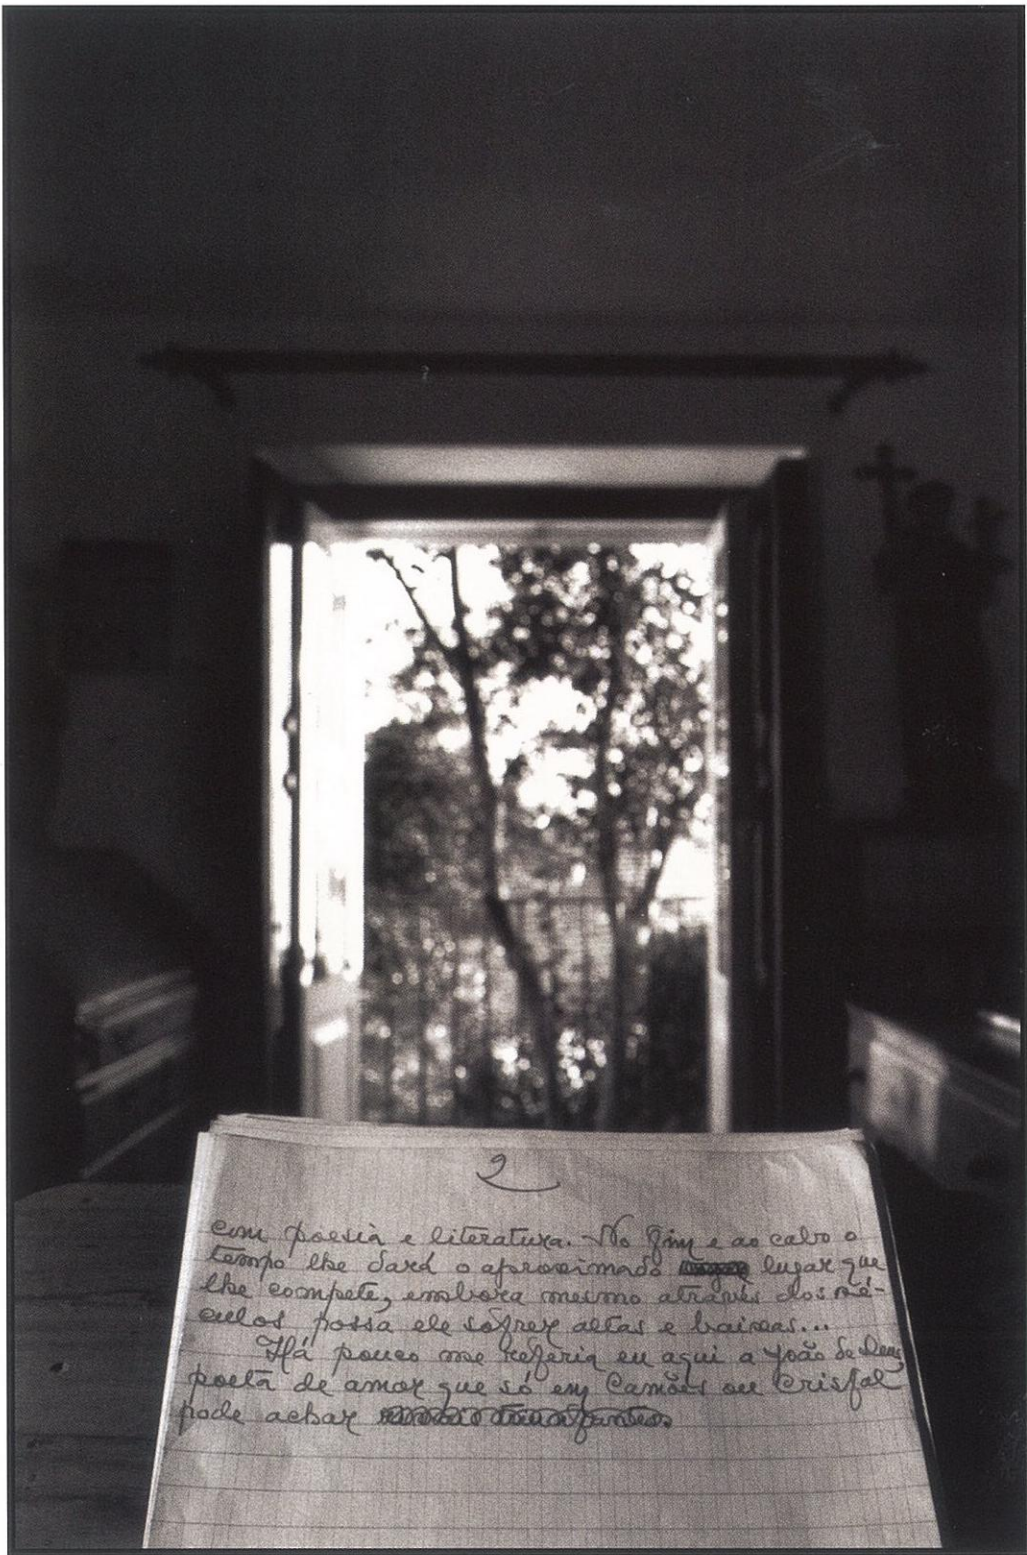 9
com poesia e literatura. No fim e ao cabo o
tempo lhe dará o aproximado lugar que
lhe compete, embora mesmo através dos sé-
culos possa ele sofrer altas e baixas...
Há pouco me referia eu aqui a João de Deus,
poeta de amor que só em Camões ou Crisfal
pode achar